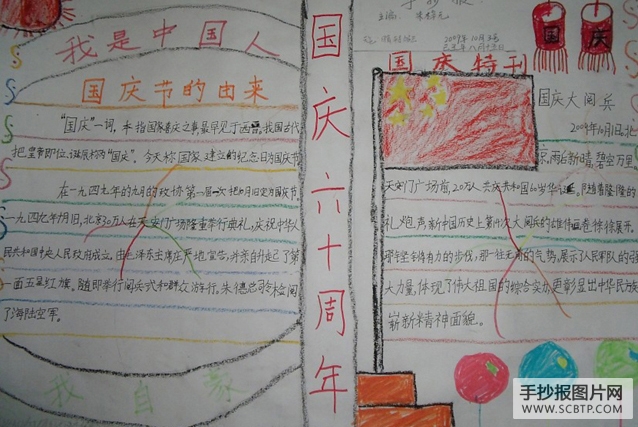 我是中国人
国庆节的由来
"国庆"一词，本指国家喜庆之事最早见于西晋，我国古代
把皇帝即位、诞辰称为"国庆"。今天称国家建立的纪念日为国庆节
在一九四九年的九月的政协第一届一次
一九四九年10月1日，北京30万人在天安门广场隆重举行典礼，庆祝中华人
民共和国中央人民政府成立，由毛泽东主席庄严地宣告，并亲自升起了第
一面五星红旗。随即举行阅兵式和群众游行，朱德总司令检阅
了海陆空军。
我自豪
国庆六十周年
手抄报
主编：
2009年10月
国庆特刊
国
庆
国庆大阅兵
2009年10月1日，北
京，雨后新晴，碧空万里
天安门广场前，20万人共庆共和国60岁华诞。伴随着隆隆的
礼炮声，新中国历史上第14次大阅兵的雄伟画卷徐徐展开。
那铿锵有力的步伐，那一往无前的气势，展示了人民军队的强
大力量，体现了伟大祖国的综合实力，更彰显出中华民族
崭新精神面貌。
手抄报图片网
WWW.SCBTP.COM